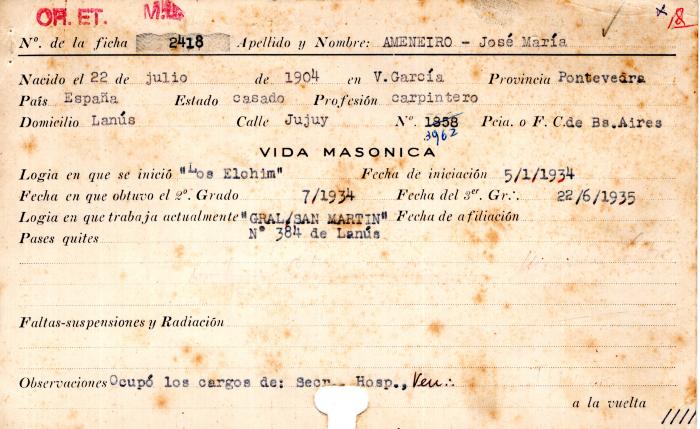 OR. ET.
Nº. de la ficha 2418 Apellido y Nombre: AMENEIRO - José María
Nacido el 22 de julio de 1904 en V.García Provincia Pontevedra
País España Estado casado Profesión carpintero
Domicilio Lanús Calle Jujuy Nº. 1358 Pcia. o F. C. de Bs.Aires
3962
VIDA MASONICA
Logia en que se inició "Los Elohim" Fecha de iniciación 5/1/1934
Fecha en que obtuvo el 2º. Grado 7/1934 Fecha del 3er. Gr∴ 22/6/1935
Logia en que trabaja actualmente "GRAL/SAN MARTIN" Fecha de afiliación
Pases quites Nº 384 de Lanús
Faltas-suspensiones y Radiación
Observaciones Ocupó los cargos de: Secr. Hosp., Ven∴
a la vuelta
1111